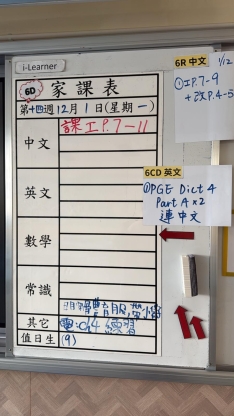 i-Learner
6D 家課表
第十四週12月1日(星期一)
中文 課工P.7-11
英文
數學
常識
其它 電:Ch4 練習
值日生 (9)
6R 中文 1/12
①工P.7-9
+改P.4-5
6CD 英文
①PGE Dict 4
Part A x2
連中文